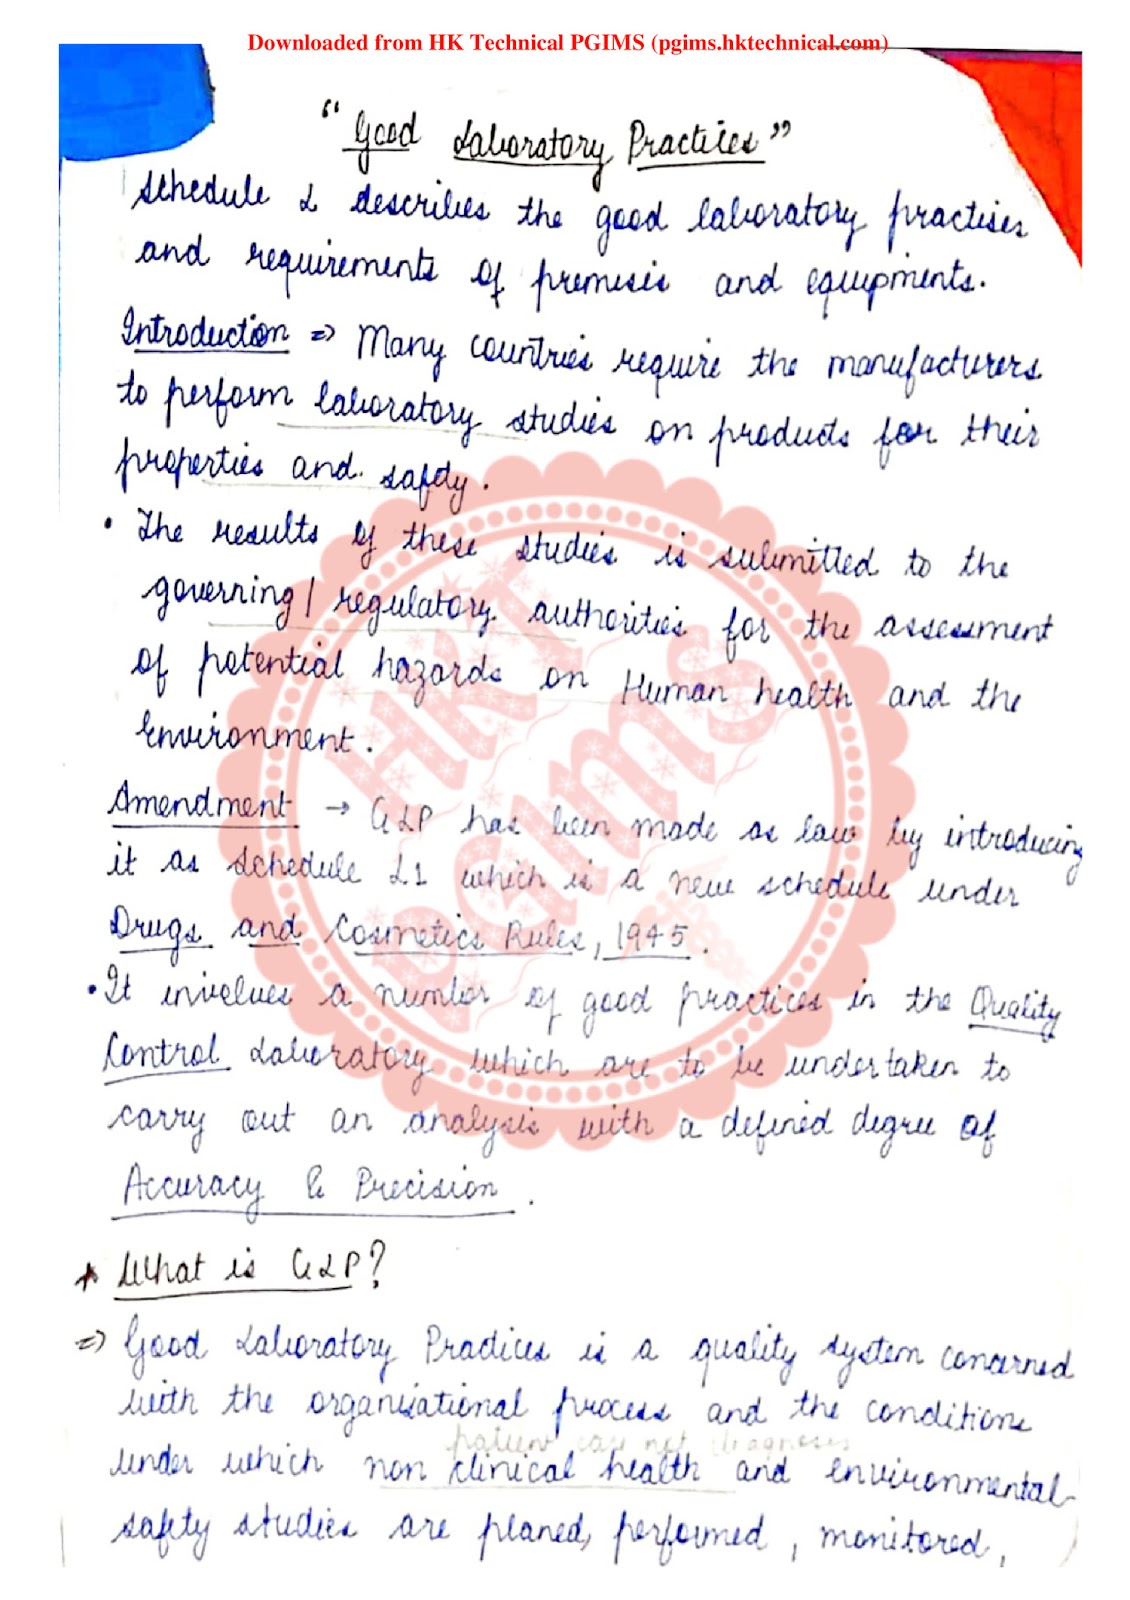 Downloaded from HK Technical PGIMS (pgims.hktechnical.com)
"Good Laboratory Practices"
Schedule L describes the good laboratory practises
and requirements of premesis and equipments.
Introduction => Many countries require the manufacturers
to perform laboratory studies on products for their
properties and safety.
• The results of these studies is submitted to the
governing/ regulatory authorities for the assessment
of potential hazards on Human health and the
Environment.
Amendment → GLP has been made as law by introducing
it as Schedule L1 which is a new schedule under
Drugs and Cosmetics Rules, 1945.
• It involves a number of good practices in the Quality
Control Laboratory which are to be undertaken to
carry out an analysis with a defined degree of
Accuracy & Precision.
* What is GLP?
=> Good Laboratory Practices is a quality system concerned
with the organisational process and the conditions
patient not diagnoses
under which non clinical health and environmental
safety studies are planed, performed, monitored,
HKT
PGIMS